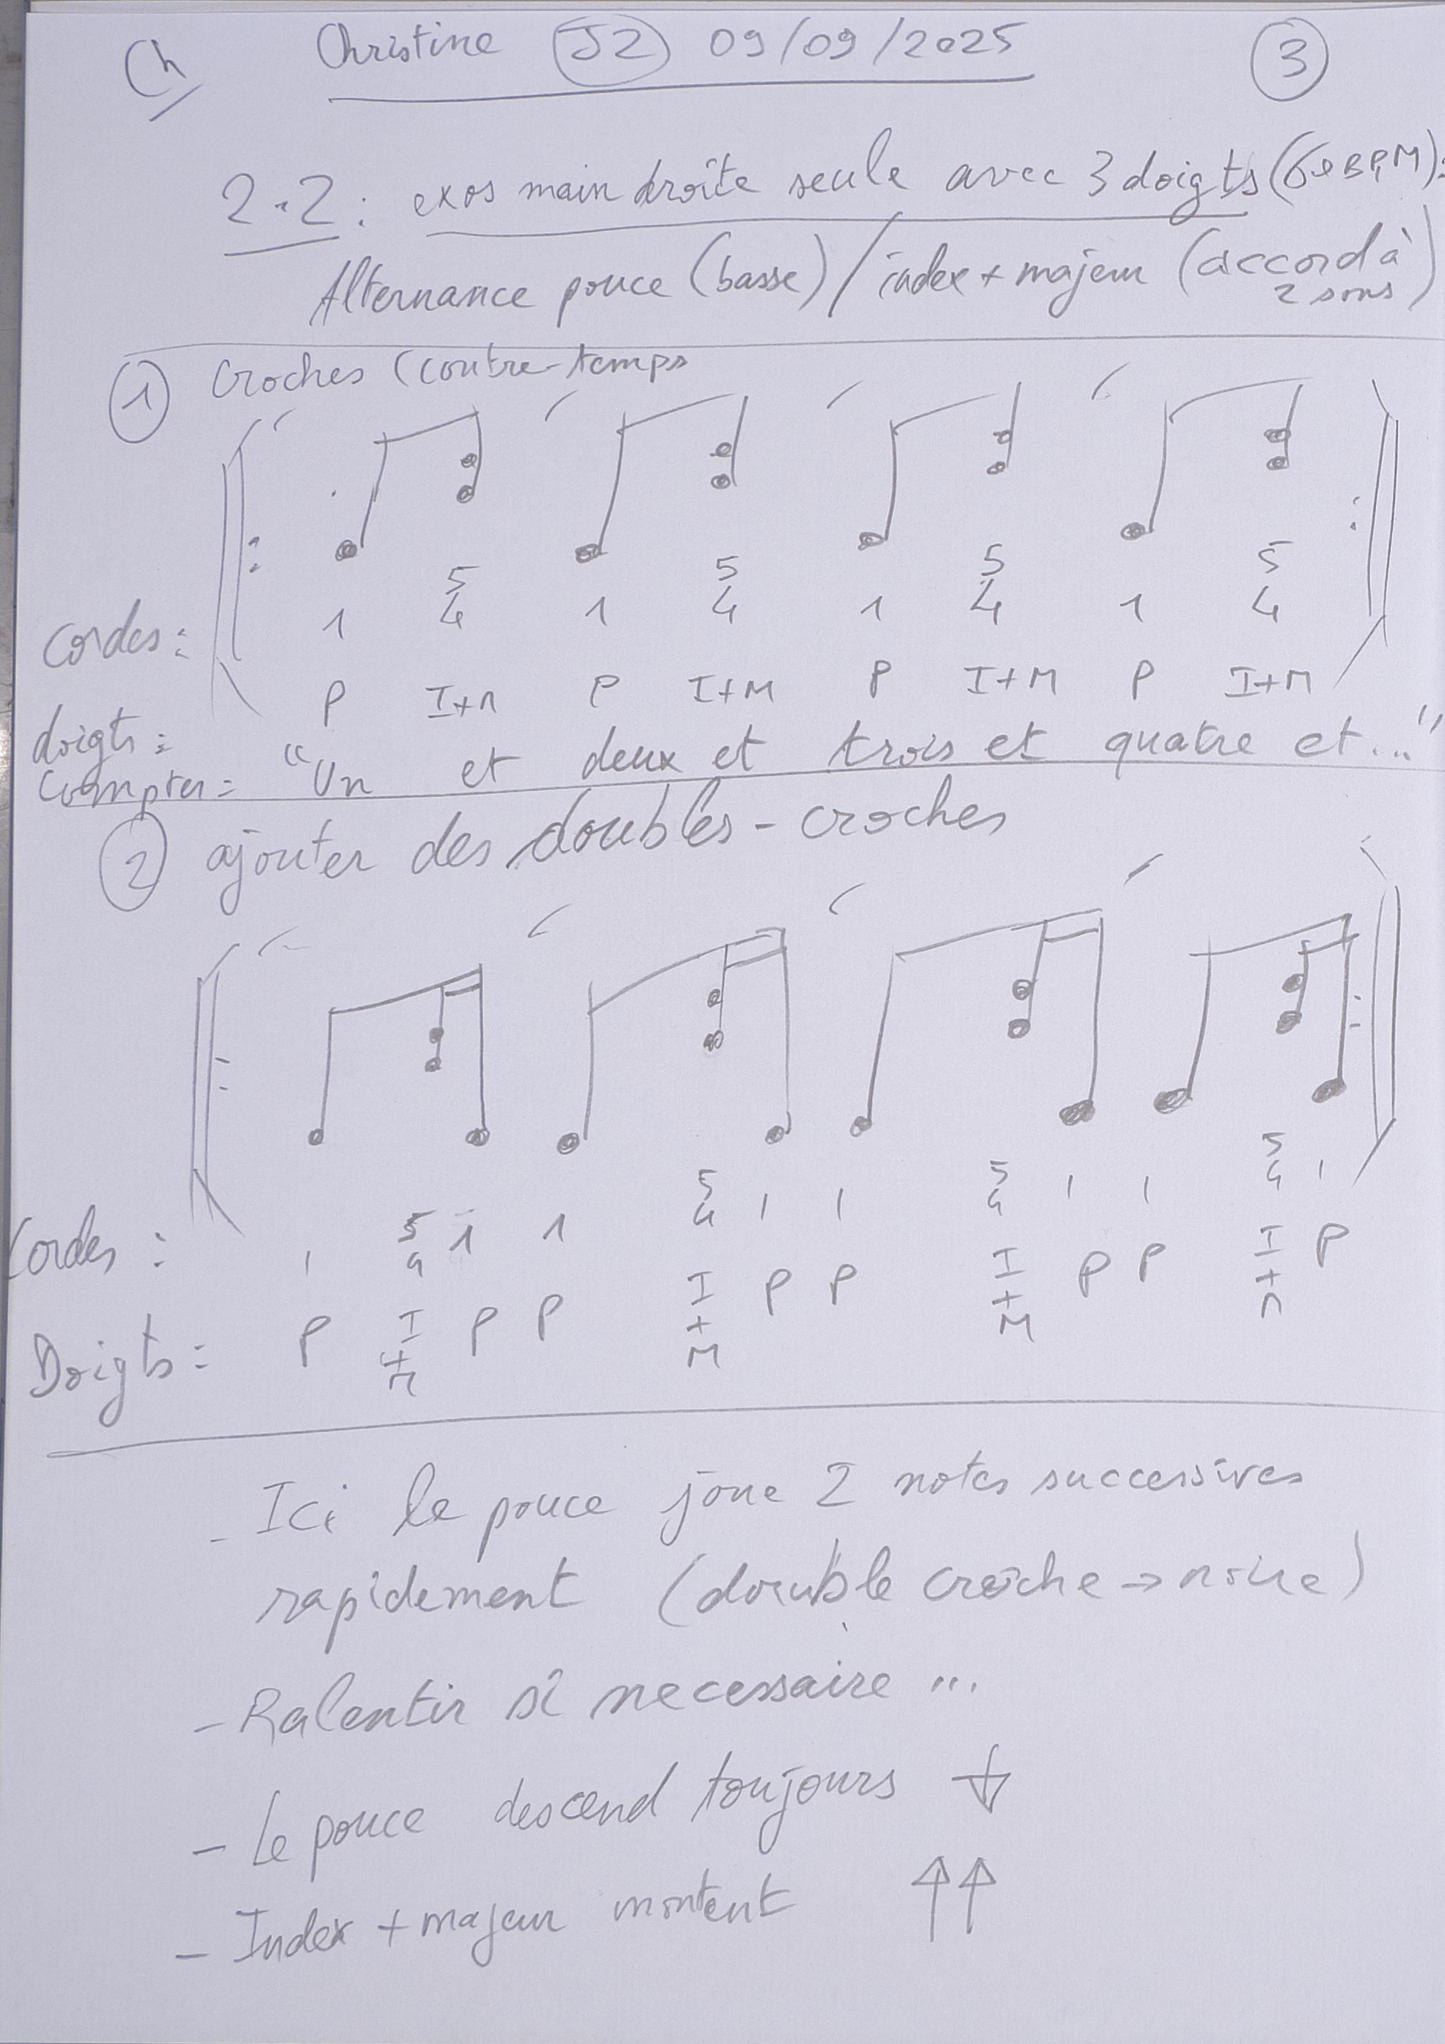 Ch Christine J2 09/09/2025 3
2.2 : exos main droite seule avec 3 doigts (60 BPM) :
Alternance pouce (basse) / index + majeur (accord à
2 sons)
1 Croches (contre-temps
5 5 5 5
Cordes : 1 4 1 4 1 4 1 4
doigts : P I+M P I+M P I+M P I+M
Compter = "Un et deux et trois et quatre et..."
2 ajouter des doubles-croches
5 5 5 5
Cordes : 1 4 1 1 4 1 1 4 1 1 4 1
Doigts : P I+M P P I+M P P I+M P P I+M P
- Ici le pouce joue 2 notes successives
rapidement (double croche → noire)
- Ralentir si necessaire ...
- Le pouce descend toujours ↓
- Index + majeur montent ↑↑